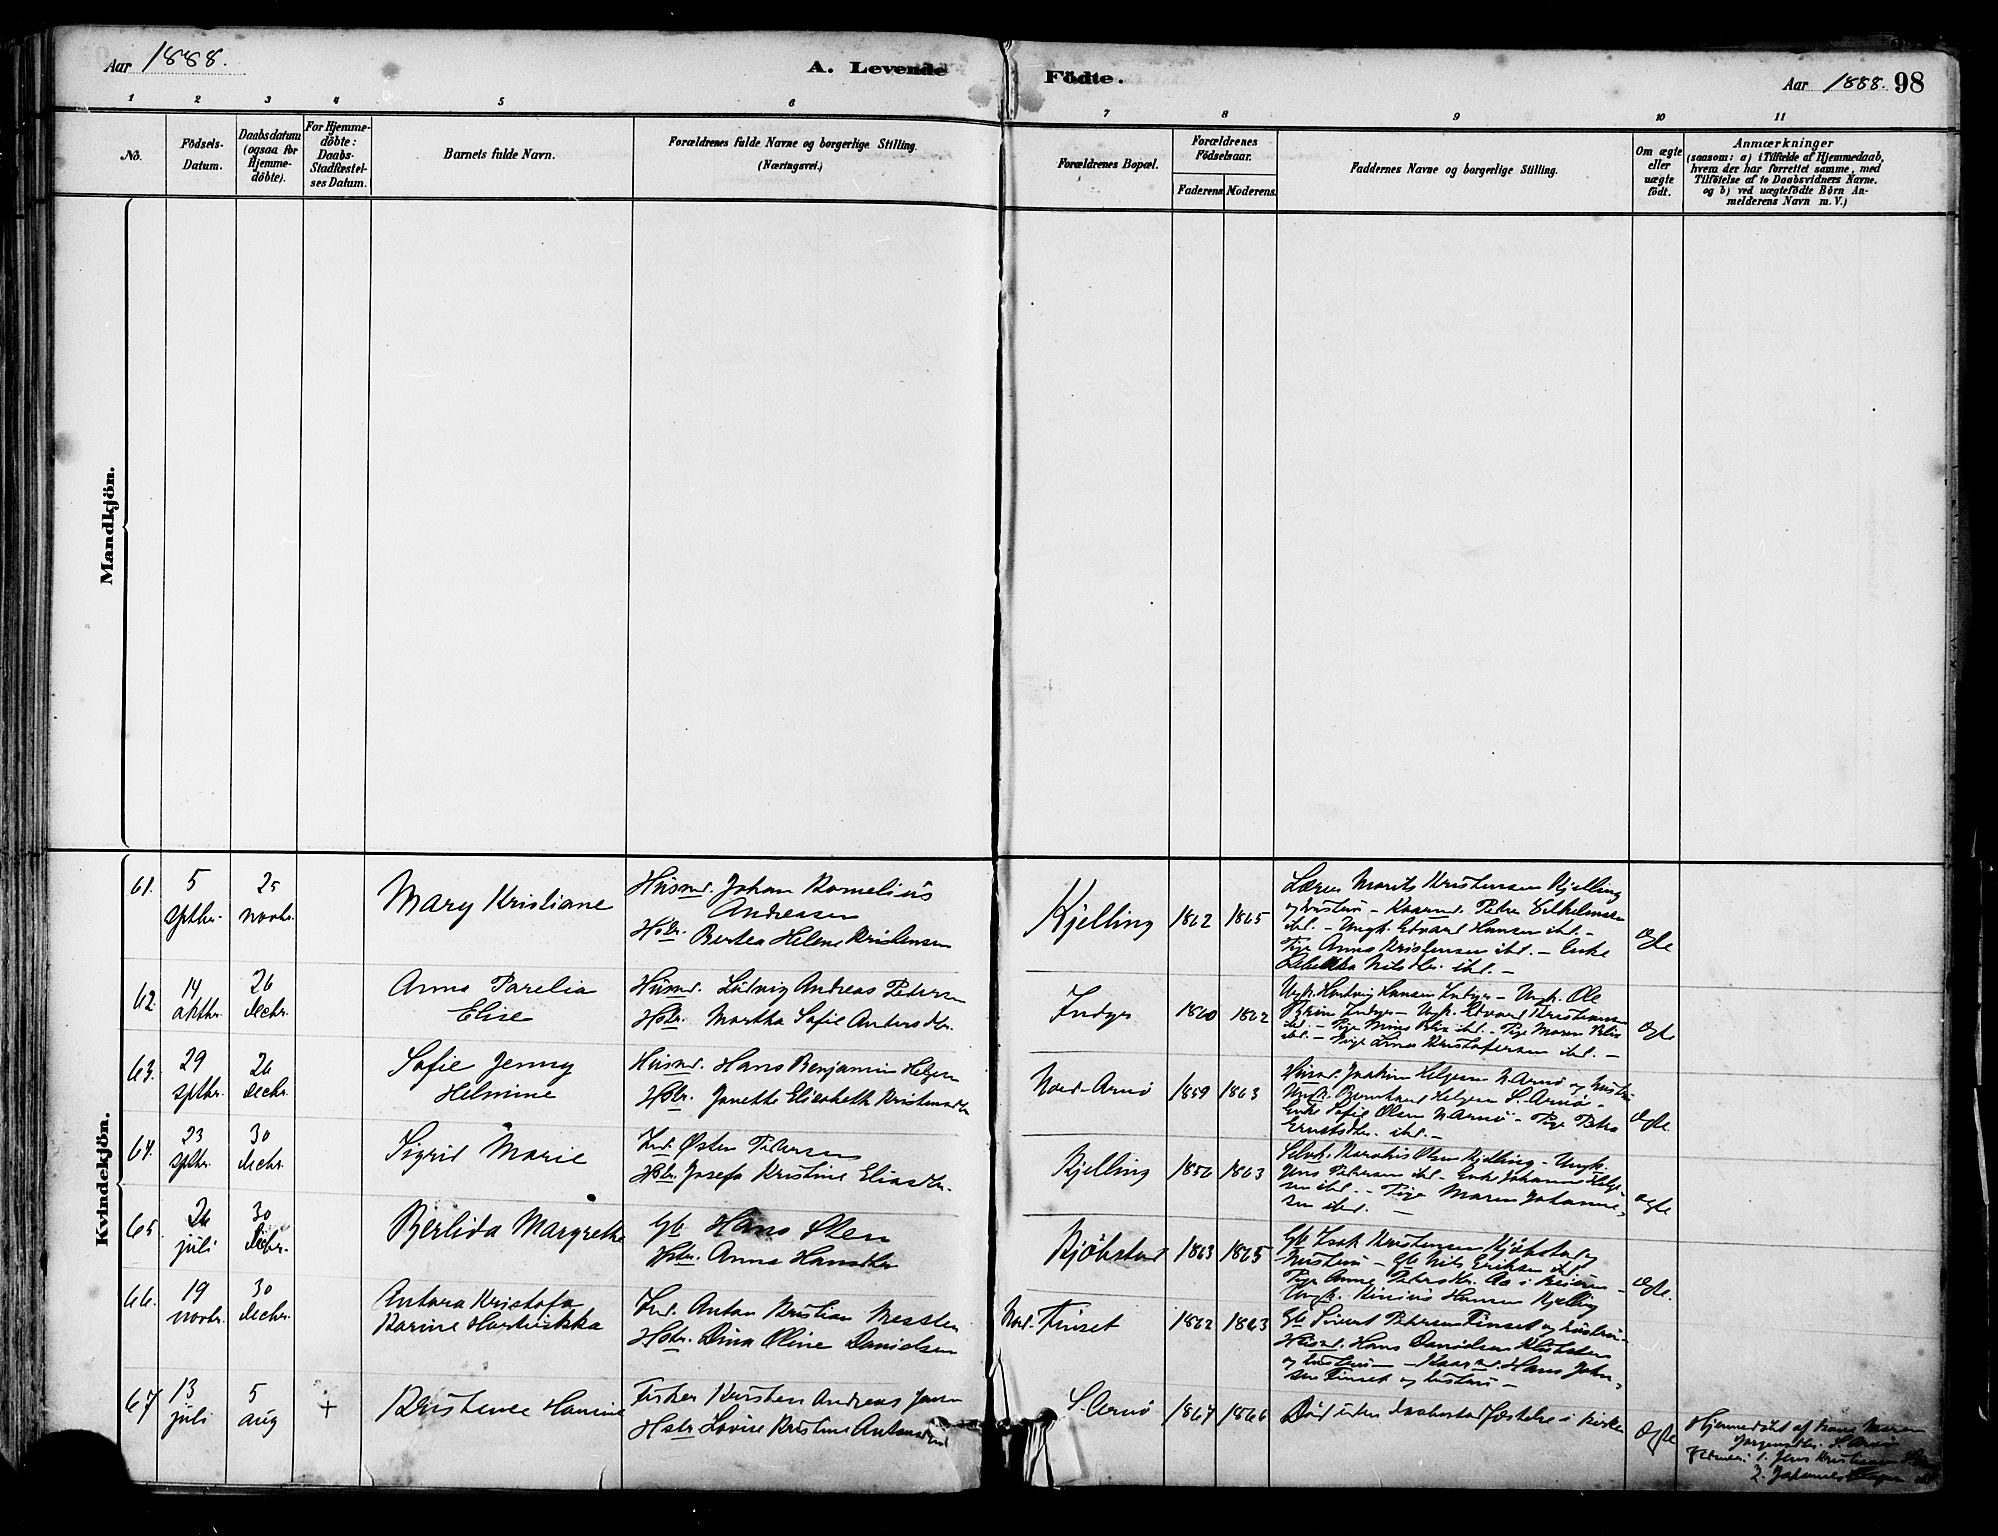 Aar 1888.
A. Levende Födte.
Aar 1888. 98
1 2 3 4 5 6 7 8 9 10 11
No.
Födsels-
Datum.
Daabsdatum
(ogsaa for
Hjemme-
döbte).
For Hjemme-
döbte:
Daabs-
Stadfæstel-
ses Datum.
Barnets fulde Navn.
Forældrenes fulde Navne og borgerlige Stilling.
(Næringsvei.)
Forældrenes Bopæl.
Forældrenes
Födselsaar.
Faderens. Moderens.
Faddernes Navne og borgerlige Stilling.
Om ægte
eller
uægte
födt.
Anmærkninger
(saasom: a) i Tilfælde af Hjemmedaab,
hvem der har forrettet samme, med
Tilföielse af to Daabsvidners Navne,
og b) ved uægtefödte Börn An-
melderens Navn m. V.)
Mandkjön.
Kvindekjön.
61. 5 septbr. 25 novbr.
Mary Kristiane
Husmd. Johan Kornelius
Andreassen
Hstr. Bertea Helene Kristensen
Kjelling 1862 1865
Lærer Morits Kristensen Kjelling
og hustru - Kaarmd. Peder Vilhelmsen
ibd. - Ungk. Edvard Hansen ibd. -
Pige Anna Kristensen ibd. - Enke
Nilsdtr. ibd. -
Ægte
62. 14 oktbr. 26 decbr.
Anna Parelia
Elise
Husmd. Ludvig Andreas Petersen
Hstr. Martha Sofie Andersdtr.
Indyr 1860 1862
Ungk. Hartvig Hansen Indyr - Ungk. Ole
Indyr - Ungk. Edvard Kristiansen
ibd. - Pige ibd. - Pige Maren
ibd. - Pige Kristofersen ibd. -
Ægte
63. 29 septbr. 26 decbr.
Sofie Jenny
Helmine
Husmd. Hans Benjamin Helgesen
Hstr. Janette Elisabeth Kristensdtr
Nord-Arnö 1859 1863
Husmd. Joakim Helgesen N. Arnö og hustru
Ungk. Bernhard Helgesen S. Arnö -
Enke Sofie Olsen N. Arnö - Pige Petra
ibd. -
Ægte
64. 23 septbr. 30 decbr.
Sigrid Marie
Ind. Østen Pedersen
Hstr. Josefa Kristine Eliasdtr.
Kjelling 1856 1863
Olsen Kjelling - Ungk.
Jens Petersen ibd. - Enke Johanna Helge-
sen ibd. - Pige Maren Johanne-
sen ibd. -
Ægte
65. 26 juli 30 decbr.
Berlida Margrethe
Gb. Hans Olsen
Hstr. Anna Hansdtr
Kjöbstad 1863 1865
Gb. Isak Kristensen Kjöbstad og
hustru - Gb. Nils Eriksen ibd.
Pige Anna Petersdtr. Aa i Beieren -
Ungk. Hansen Kjelling
Ægte.
66. 19 novbr. 30 decbr.
Antora Kristofa
Karine
Ind. Anton Kristian
Hstr. Dina Oline Danielsen
Nord. Finset 1862 1863
Gb. Sivert Petersen Finset og hustru -
Husmd. Hans
og hustru - Kaarmd. Hans John-
sen Finset og hustru -
67. 13 juli 5 aug +
Kristense Hanine
Fisker Kristen Andreas
Hstr. Lovise Kristine
S. Arnö 1867 1866
Död uden Daabsstadfæstelse i Kirke
Ægte
Hjemmedöbt af Maren
S. Arnö
1. Jens
2. Johannes